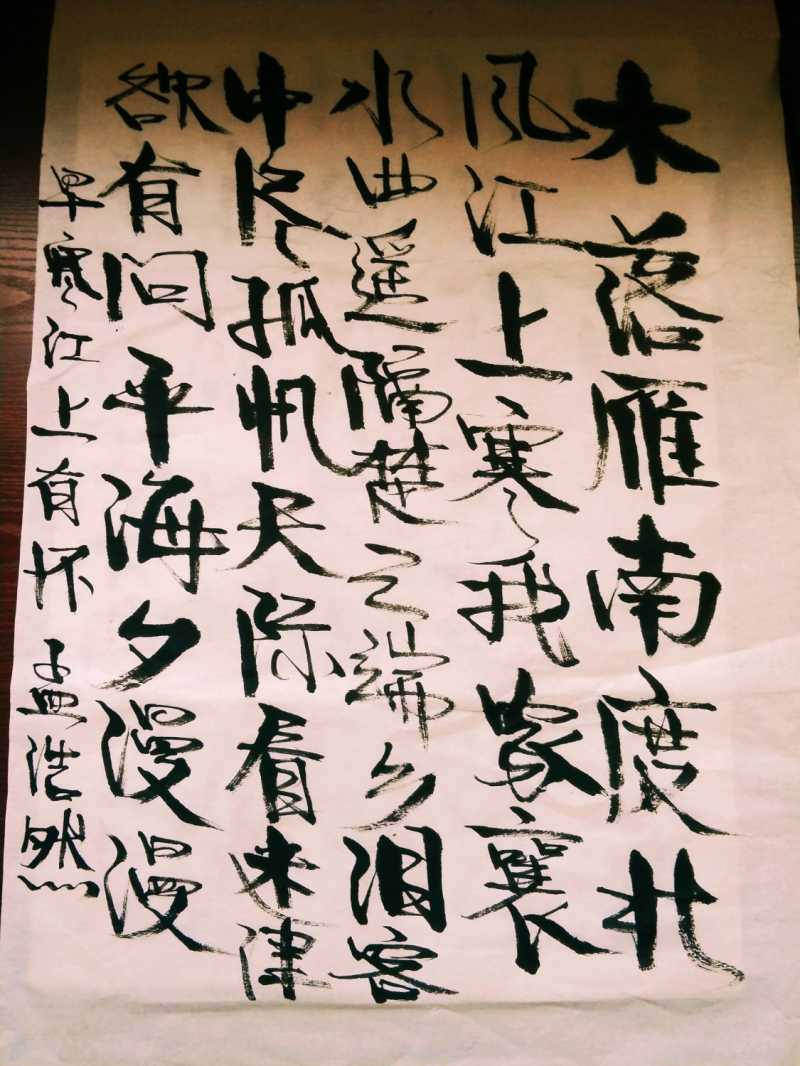 木落雁南度北
风江上寒我家襄
水曲遥隔楚云端乡泪客
中尽孤帆天际看来津
欲有问平海夕漫漫
早寒江上有怀 孟浩然